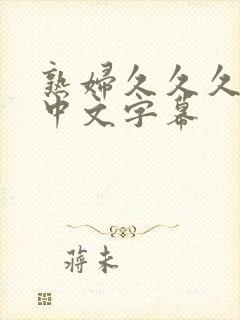 熟婦久久久
中文字幕
蒋未